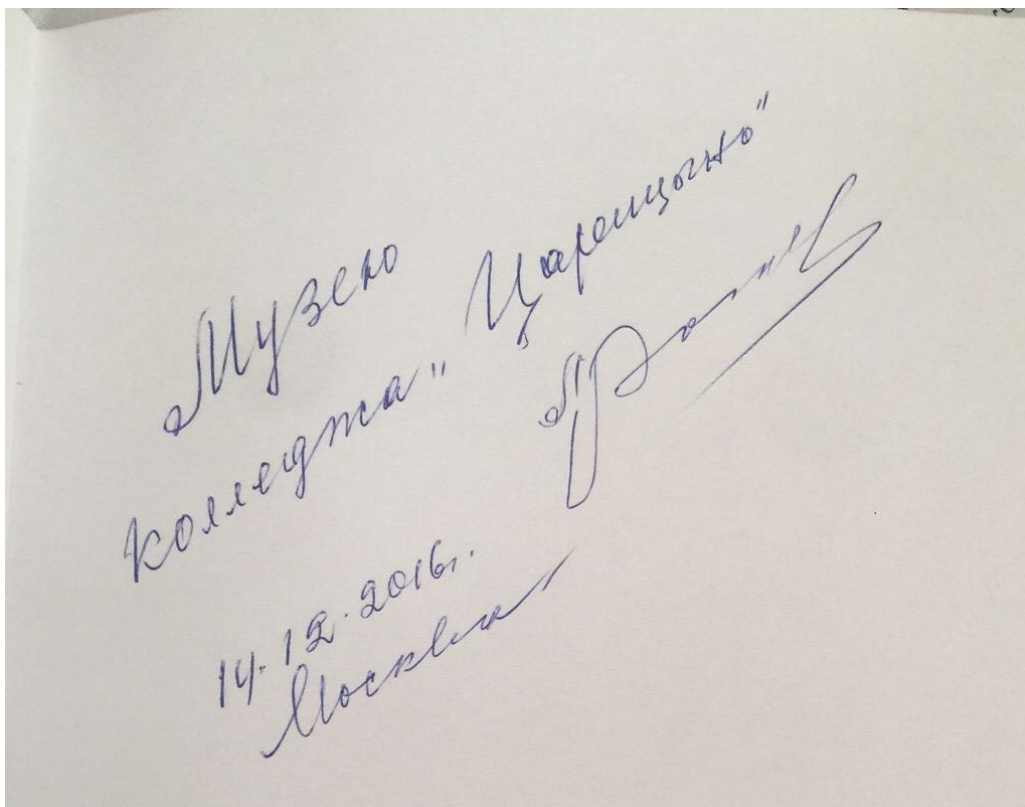 Музею
колледжа "Царицыно"
14.12.2016г.
Москва